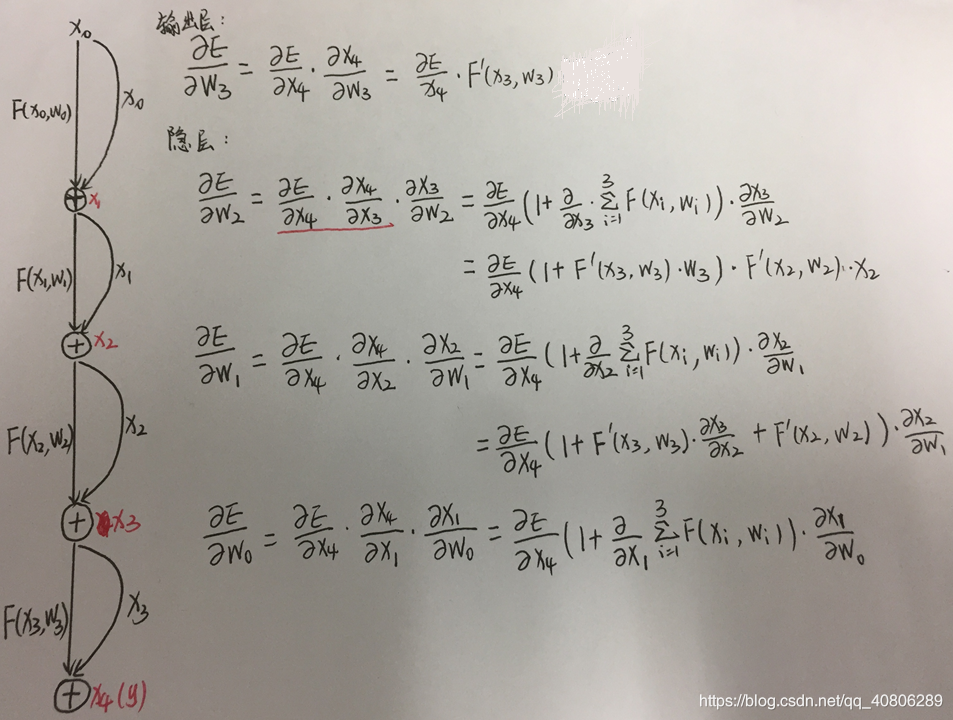 x₀
F(x₀,w₀)
x₀
x₁
F(x₁,w₁)
x₁
x₂
F(x₂,w₂)
x₂
x3
F(x₃,w₃)
x₃
x₄(y)
输出层:
∂E/∂W₃ = ∂E/∂x₄ · ∂x₄/∂W₃ = ∂E/x₄ · F'(x₃,w₃)
隐层:
∂E/∂W₂ = ∂E/∂x₄ · ∂x₄/∂x₃ · ∂x₃/∂W₂ = ∂E/∂x₄ (1+ ∂/∂x₃ · Σ³ᵢ₌₁ F(xᵢ,wᵢ)) · ∂x₃/∂W₂
= ∂E/∂x₄ (1+ F'(x₃,w₃)·w₃) · F'(x₂,w₂)·x₂
∂E/∂W₁ = ∂E/∂x₄ · ∂x₄/∂x₂ · ∂x₂/∂W₁ = ∂E/∂x₄ (1+ ∂/∂x₂ Σ³ᵢ₌₁ F(xᵢ,wᵢ)) · ∂x₂/∂W₁
= ∂E/∂x₄ (1+ F'(x₃,w₃)· ∂x₃/∂x₂ + F'(x₂,w₂)) · ∂x₂/∂W₁
∂E/∂W₀ = ∂E/∂x₄ · ∂x₄/∂x₁ · ∂x₁/∂W₀ = ∂E/∂x₄ (1+ ∂/∂x₁ Σ³ᵢ₌₁ F(xᵢ,wᵢ)) · ∂x₁/∂W₀
https://blog.csdn.net/qq_40806289